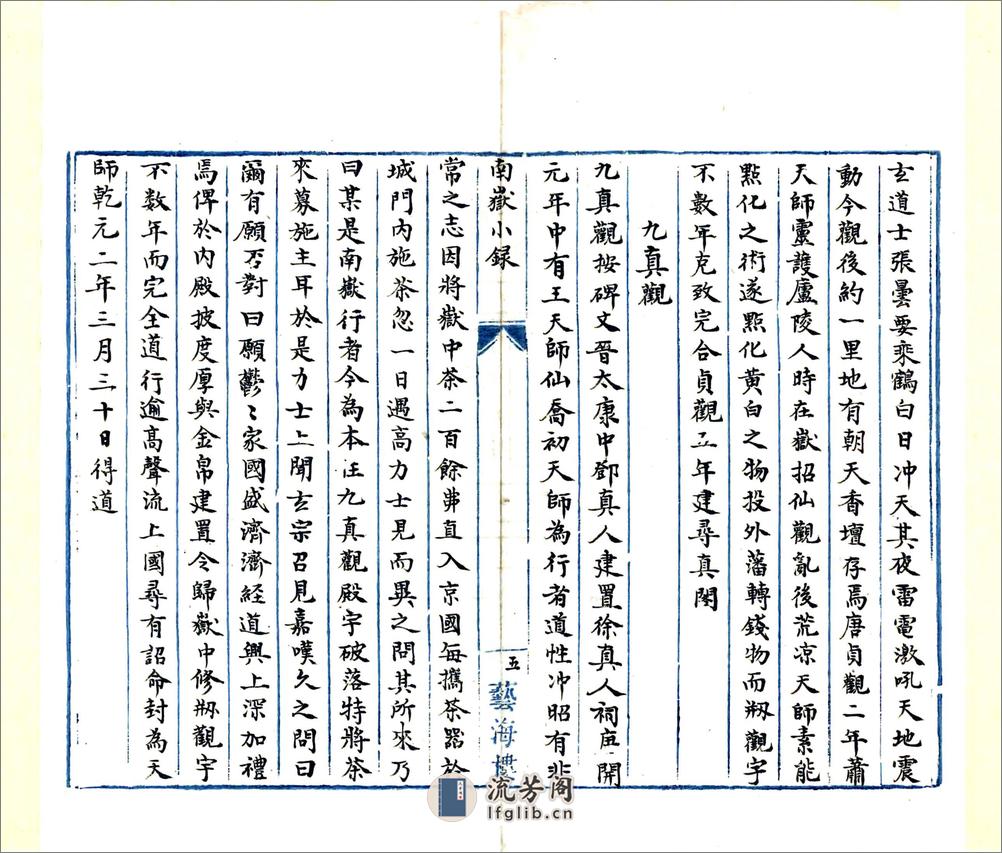 玄道士張曇要乘鶴白日冲天其夜雷電激吼天地震
動今觀後約一里地有朝天香壇存焉唐貞觀二年蕭
天師靈護廬陵人時在嶽招仙觀亂後荒凉天師素能
點化之術遂點化黄白之物投外藩轉錢物而剏觀宇
不数年克致完合貞觀五年建尋真閣
九真觀
九真觀按碑文晉太康中鄧真人建置徐真人祠庭開
元年中有王天師仙喬初天師為行者道性冲昭有非
南嶽小録
五
藝海樓
常之志因將嶽中茶二百餘串直入京國每攜茶器於
城門内施茶忽一日遇高力士見而異之問其所來乃
曰某是南嶽行者今為本住九真觀殿宇破落特將茶
來募施主耳於是力士上聞玄宗召見嘉嘆久之問曰
爾有願否對曰願鬱〻家國盛濟濟経道興上深加禮
焉俾於内殿披度厚與金帛建置令歸嶽中修剏觀宇
不数年而完全道行逾髙聲流上國尋有詔命封為天
師乾元二年三月三十日得道
流芳阁
lfglib.cn